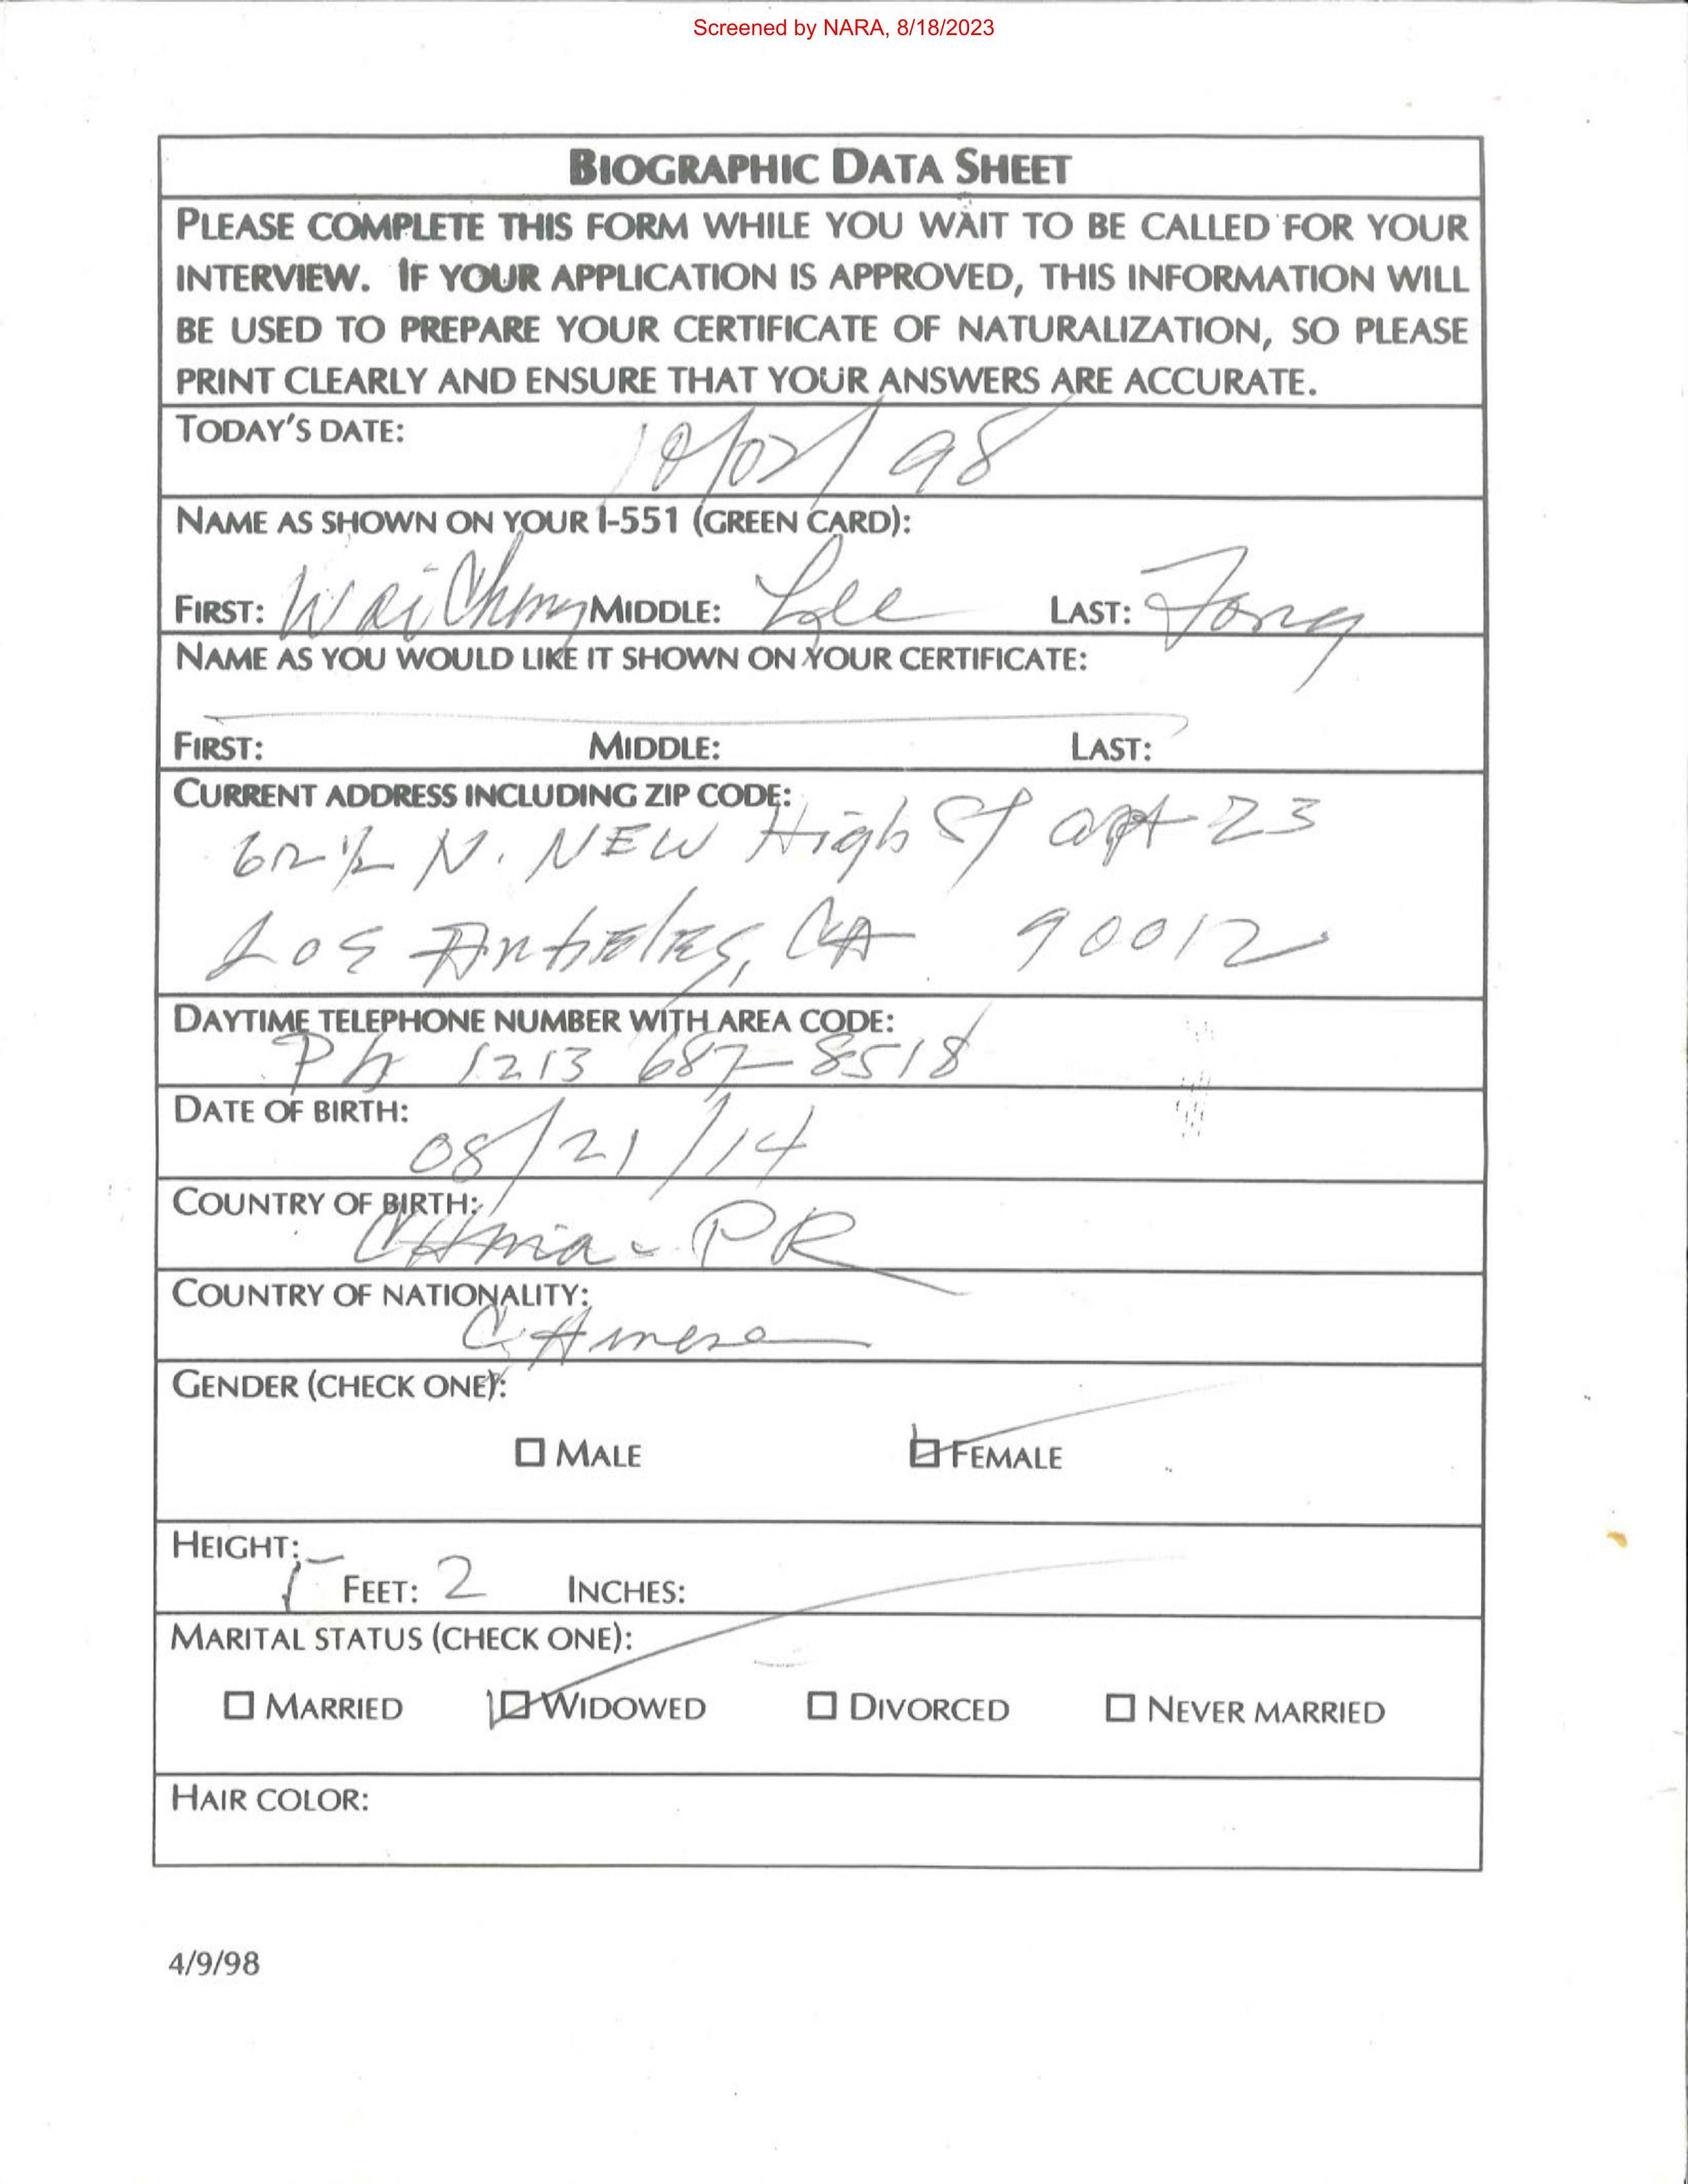 Screened by NARA, 8/18/2023
BIOGRAPHIC DATA SHEET
PLEASE COMPLETE THIS FORM WHILE YOU WAIT TO BE CALLED FOR YOUR
INTERVIEW. IF YOUR APPLICATION IS APPROVED, THIS INFORMATION WILL
BE USED TO PREPARE YOUR CERTIFICATE OF NATURALIZATION, SO PLEASE
PRINT CLEARLY AND ENSURE THAT YOUR ANSWERS ARE ACCURATE.
TODAY'S DATE:
10/02/98
NAME AS SHOWN ON YOUR I-551 (GREEN CARD):
FIRST: Wai Chung MIDDLE: Lee LAST: Fong
NAME AS YOU WOULD LIKE IT SHOWN ON YOUR CERTIFICATE:
FIRST: MIDDLE: LAST:
CURRENT ADDRESS INCLUDING ZIP CODE:
N. NEW High St apt 23
Los CA 90012
DAYTIME TELEPHONE NUMBER WITH AREA CODE:
Ph 1213 687-8518
DATE OF BIRTH:
08/21/14
COUNTRY OF BIRTH:
CHina - PR
COUNTRY OF NATIONALITY:
CHinese
GENDER (CHECK ONE):
☐ MALE ☑ FEMALE
HEIGHT:
5 FEET: 2 INCHES:
MARITAL STATUS (CHECK ONE):
☐ MARRIED ☑ WIDOWED ☐ DIVORCED ☐ NEVER MARRIED
HAIR COLOR:
4/9/98